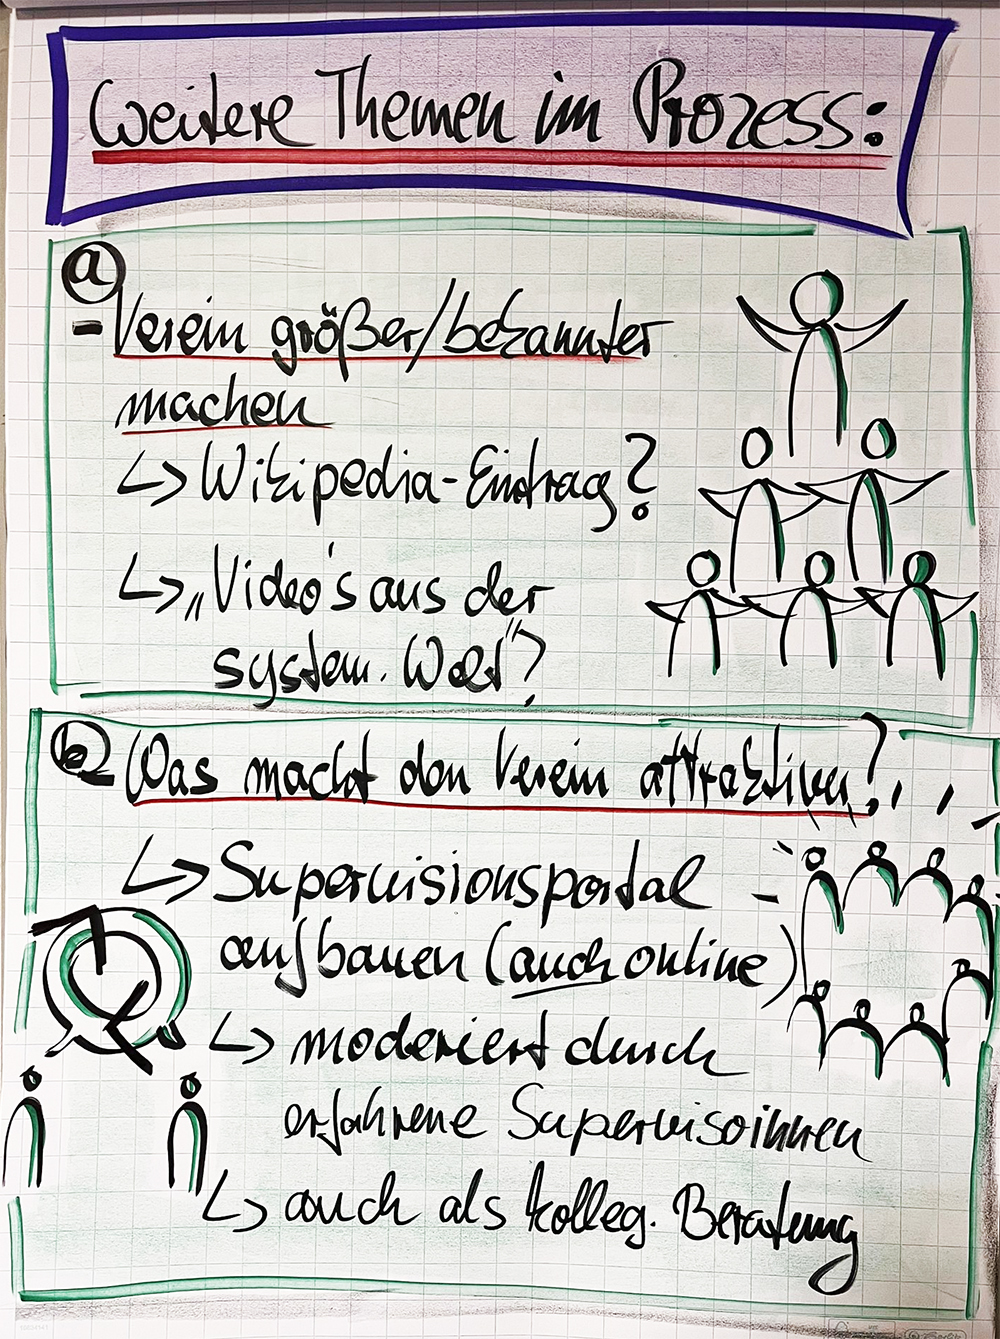 Weitere Themen im Prozess:
a
- Verein größer/bekannter
machen
↳ Wikipedia-Eintrag?
↳ „Video's aus der
system. Welt"?
b Was macht den Verein attraktiv?
↳ Supervisionsportal
aufbauen (auch online)
↳ moderiert durch
erfahrene Supervisoinnen
↳ auch als kolleg. Beratung